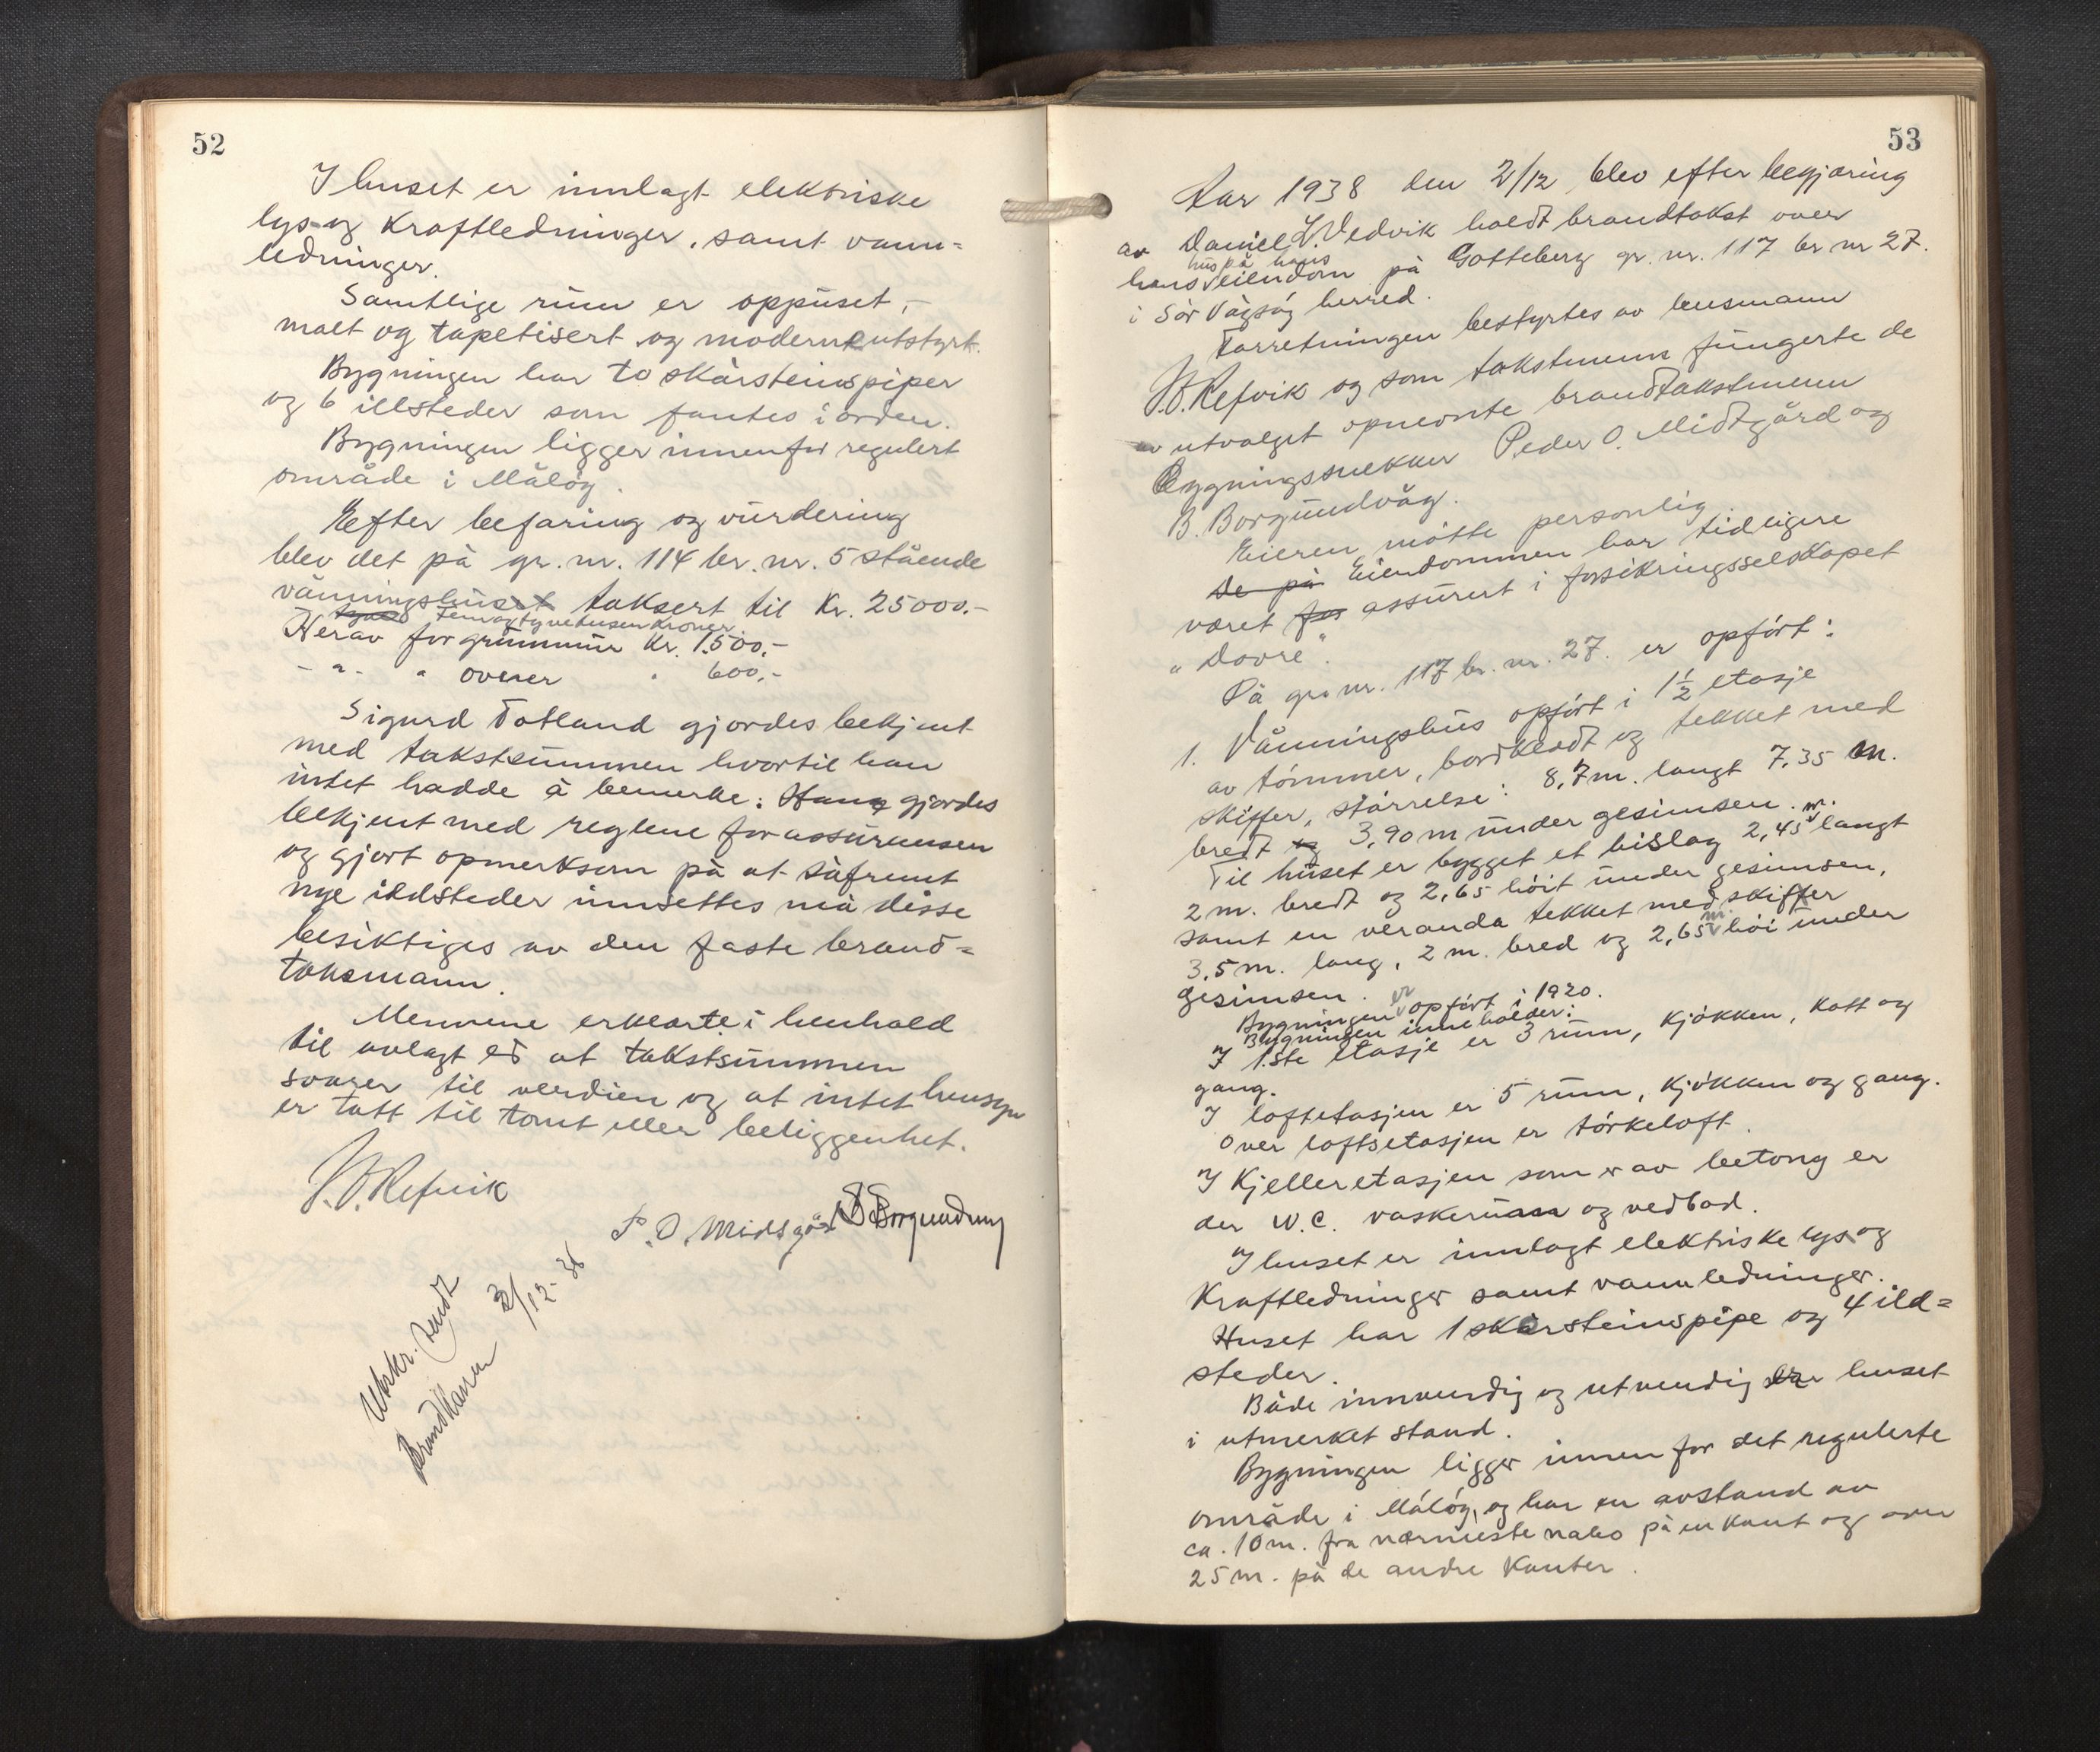 52
I huset er innlagt elektriske
lys og Kraftledninger, samt vann=
ledninger.
Samtlige rum er oppuset,
malt og tapetisert og moderne utstyrt.
Bygningen har to skårsteinspiper
og 6 illsteder som fantes i orden.
Bygningen ligger innenfor regulert
område i Måløy.
Efter befaring og vurdering
blev det på gr. nr. 114 br. nr. 5 stående
våningshuset taksert til Kr. 25000.-
femogtyvetusen Kroner
Herav for grunnmur Kr. 1.500.-
- " - " ovener " 600.-
Sigurd Totland gjordes bekjent
med takstsummen hvortil han
intet hadde å bemerke. Han gjordes
bekjent med reglene for assuransen
og gjort opmerksom på at såfremt
nye ildsteder innsettes må disse
besiktiges av den faste brand=
taksmann.
Mennene erklærte i henhold
til avlagt ed at takstsummen
svarer til verdien og at intet hensyn
er tatt til tomt eller beliggenhet.
J. O. Refvik
P. O. Midtgård B Borgundvåg
Utskr. sendt
Brandkassen 3/12-38
53
Aar 1938 den 2/12 blev efter begjæring
av Daniel L. Vedvik holdt brandtakst over
hus på hans
hans eiendom på Gotteberg gr. nr. 117 br nr 27.
i Sør Vågsøy herred.
Forretningen bestyrtes av lensmann
J. O. Refvik og som takstmenn fungerte de
av utvalget opnevnte brandtakstmenn
Bygningssnekker Peder O. Midtgård og
B. Borgundvåg.
Eieren møtte personlig.
De på Eiendommen har tidligere
været for assurert i forsikringsselskapet
"Dovre".
På gr. nr. 117 br. nr. 27. er opført:
1. Våningshus opført i 1½ etasje
av tømmer, bordklædt og tekket med
skiffer, størrelse: 8,7 m. langt 7.35 m.
bredt og 3,90 m under gesimsen.
Til huset er bygget et bislag 2,45 m. langt
2 m. bredt og 2,65 høit under gesimsen,
samt en veranda tekket med skiffer
3,5 m. lang, 2 m. bred og 2,65 m. høi under
gesimsen.
Bygningen er opført i 1920.
Bygningen inneholder:
I 1.ste etasje er 3 rum, kjøkken, kott og
gang.
I loftetasjen er 5 rum, kjøkken og gang.
Over loftsetasjen er tørkeloft.
I Kjelleretasjen som er av betong er
der W.C. vaskerum og vedbod.
I huset er innlagt elektriske lys og
Kraftledninger samt vannledninger.
Huset har 1 skårsteinspipe og 4 ild=
steder.
Både innvendig og utvendig er huset
i utmerket stand.
Bygningen ligger innen for det regulerte
område i Måløy, og har en avstand av
ca. 10 m. fra nærmeste nabo på en kant og over
25 m. på de andre kanter.